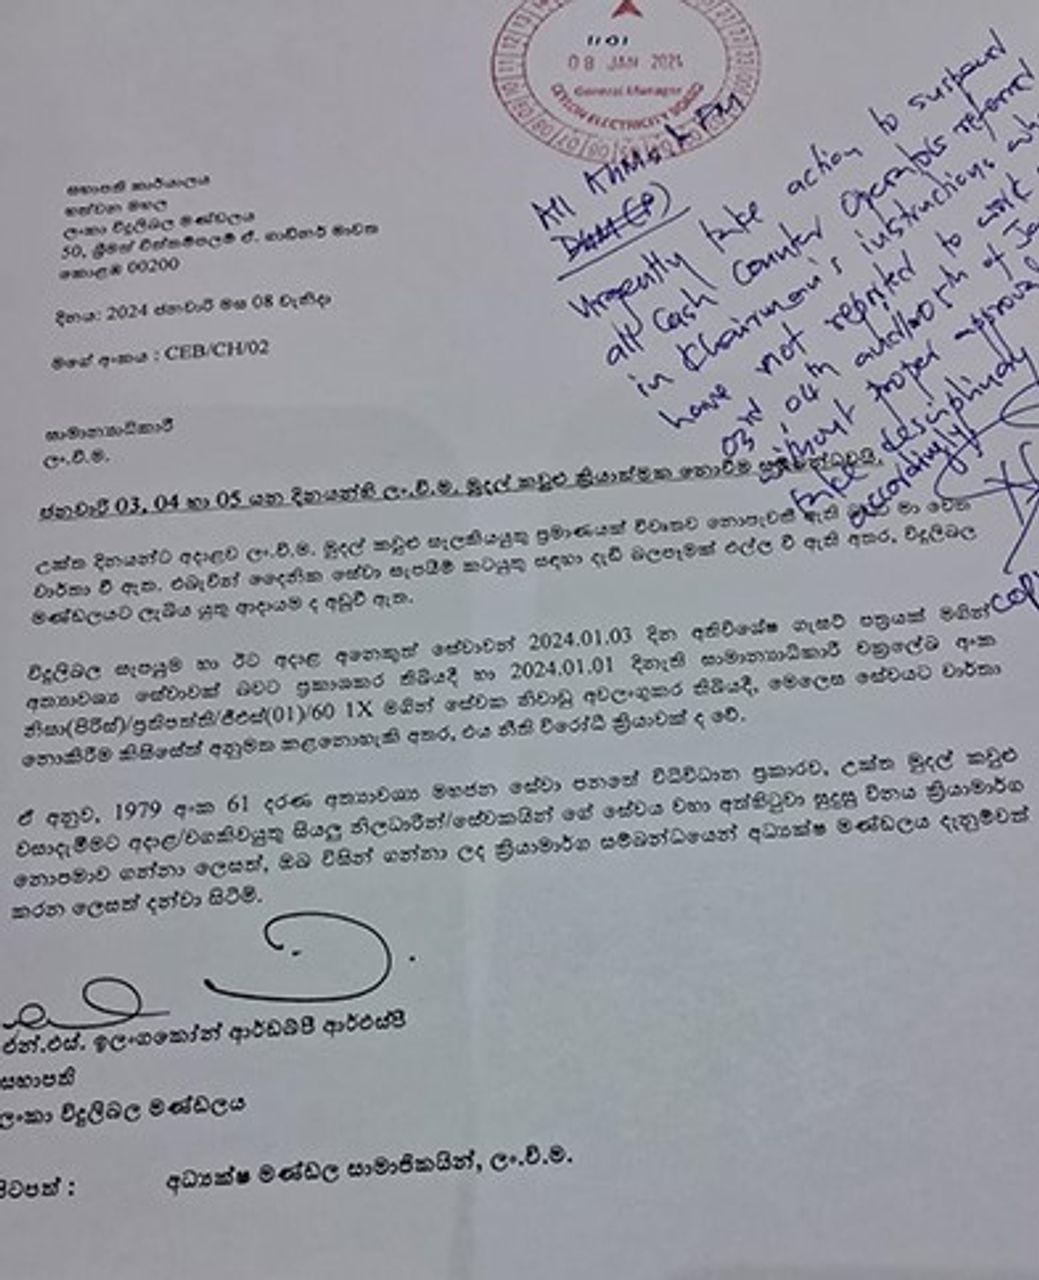 1101
08 JAN 2024
General Manager
CEYLON ELECTRICITY BOARD
All
Urgently take action to suspend
all Cash Counter Operators referred
in Chairman's instructions who
have not reported to work
03rd, 04th and/or 5th of Ja
without proper approval
take desciplinary
accordingly.
සභාපති කාර්යාලය
හත්වන මහල
ලංකා විදුලිබල මණ්ඩලය
50, ශ්‍රීමත් චිත්තම්පලම් ඒ. ගාඩිනර් මාවත
කොළඹ 00200
දිනය: 2024 ජනවාරි මස 08 වැනිදා
මගේ අංකය : CEB/CH/02
සාමාන්‍යාධිකාරී
ලං.වි.ම.
ජනවාරි 03, 04 හා 05 යන දිනයන්හි ලං.වි.ම. මුදල් කවුළු ක්‍රියාත්මක නොවීම සම්බන්ධවයි.
උක්ත දිනයන්ට අදාළව ලං.වි.ම. මුදල් කවුළු සැලකියයුතු ප්‍රමාණයක් විවෘතව නොපැවති ඇති බවට මා වෙත
වාර්තා වී ඇත. එබැවින් දෛනික සේවා සැපයීම් කටයුතු සඳහා දැඩි බලපෑමක් එල්ල වී ඇති අතර, විදුලිබල
මණ්ඩලයට ලැබිය යුතු ආදායම ද අඩුවී ඇත.
විදුලිබල සැපයුම හා ඊට අදාළ අනෙකුත් සේවාවන් 2024.01.03 දින අතිවිශේෂ ගැසට් පත්‍රයක් මගින්
අත්‍යාවශ්‍ය සේවාවක් බවට ප්‍රකාශකර තිබියදී හා 2024.01.01 දිනැති සාමාන්‍යාධිකාරී චක්‍රලේඛ අංක
නිසා(පිරිස්)/ප්‍රතිපත්ති/ජීඑස්(01)/60 1X මගින් සේවක නිවාඩු අවලංගුකර තිබියදී, මෙලෙස සේවයට වාර්තා
නොකිරීම කිසිසේත් අනුමත කළනොහැකි අතර, එය නීති විරෝධී ක්‍රියාවක් ද වේ.
ඒ අනුව, 1979 අංක 61 දරණ අත්‍යාවශ්‍ය මහජන සේවා පනතේ විධිවිධාන ප්‍රකාරව, උක්ත මුදල් කවුළු
වසාදැමීමට අදාළ/වගකිවයුතු සියලු නිලධාරීන්/සේවකයින් ගේ සේවය වහා අත්හිටුවා සුදුසු විනය ක්‍රියාමාර්ග
නොපමාව ගන්නා ලෙසත්, ඔබ විසින් ගන්නා ලද ක්‍රියාමාර්ග සම්බන්ධයෙන් අධ්‍යක්ෂ මණ්ඩලය දැනුම්වත්
කරන ලෙසත් දන්වා සිටිමි.
එන්.එස්. ඉලංගකෝන් ආර්ඩබ්පී ආර්එස්පී
සභාපති
ලංකා විදුලිබල මණ්ඩලය
පිටපත් : අධ්‍යක්ෂ මණ්ඩල සාමාජිකයින්, ලං.වි.ම.